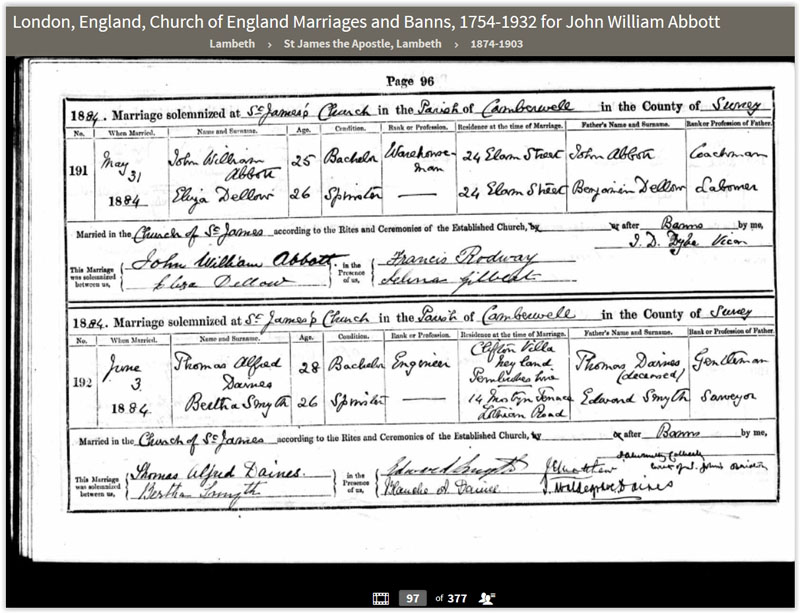 London, England, Church of England Marriages and Banns, 1754-1932 for John William Abbott
Lambeth > St James the Apostle, Lambeth > 1874-1903
Page 96
1884. Marriage solemnized at St James's Church in the Parish of Camberwell in the County of Surrey
No. When Married. Name and Surname. Age. Condition. Rank or Profession. Residence at the time of Marriage. Father's Name and Surname. Rank or Profession of Father.
191 May 31 1884
John William Abbott 25 Bachelor Warehouseman 24 Elam Street John Abbott Coachman
Eliza Dellow 26 Spinster — 24 Elam Street Benjamin Dellow Labourer
Married in the Church of St James according to the Rites and Ceremonies of the Established Church, by or after Banns by me,
Vicar
This Marriage was solemnized between us, John William Abbott in the Presence of us, Francis Rodway
Eliza Dellow Gilbert
1884. Marriage solemnized at St James's Church in the Parish of Camberwell in the County of Surrey
No. When Married. Name and Surname. Age. Condition. Rank or Profession. Residence at the time of Marriage. Father's Name and Surname. Rank or Profession of Father.
192 June 3 1884.
Thomas Alfred Daines 28 Bachelor Engineer Clifton Villa Thomas Daines (deceased) Gentleman
Bertha Smyth 26 Spinster — 14 Mostyn Terrace Lothian Road Edward Smyth Surveyor
Married in the Church of St James according to the Rites and Ceremonies of the Established Church, by or after Banns by me,
This Marriage was solemnized between us, Thomas Alfred Daines. in the Presence of us, Edward Smyth
Bertha Smyth Blanche A Daines Daines
97 of 377